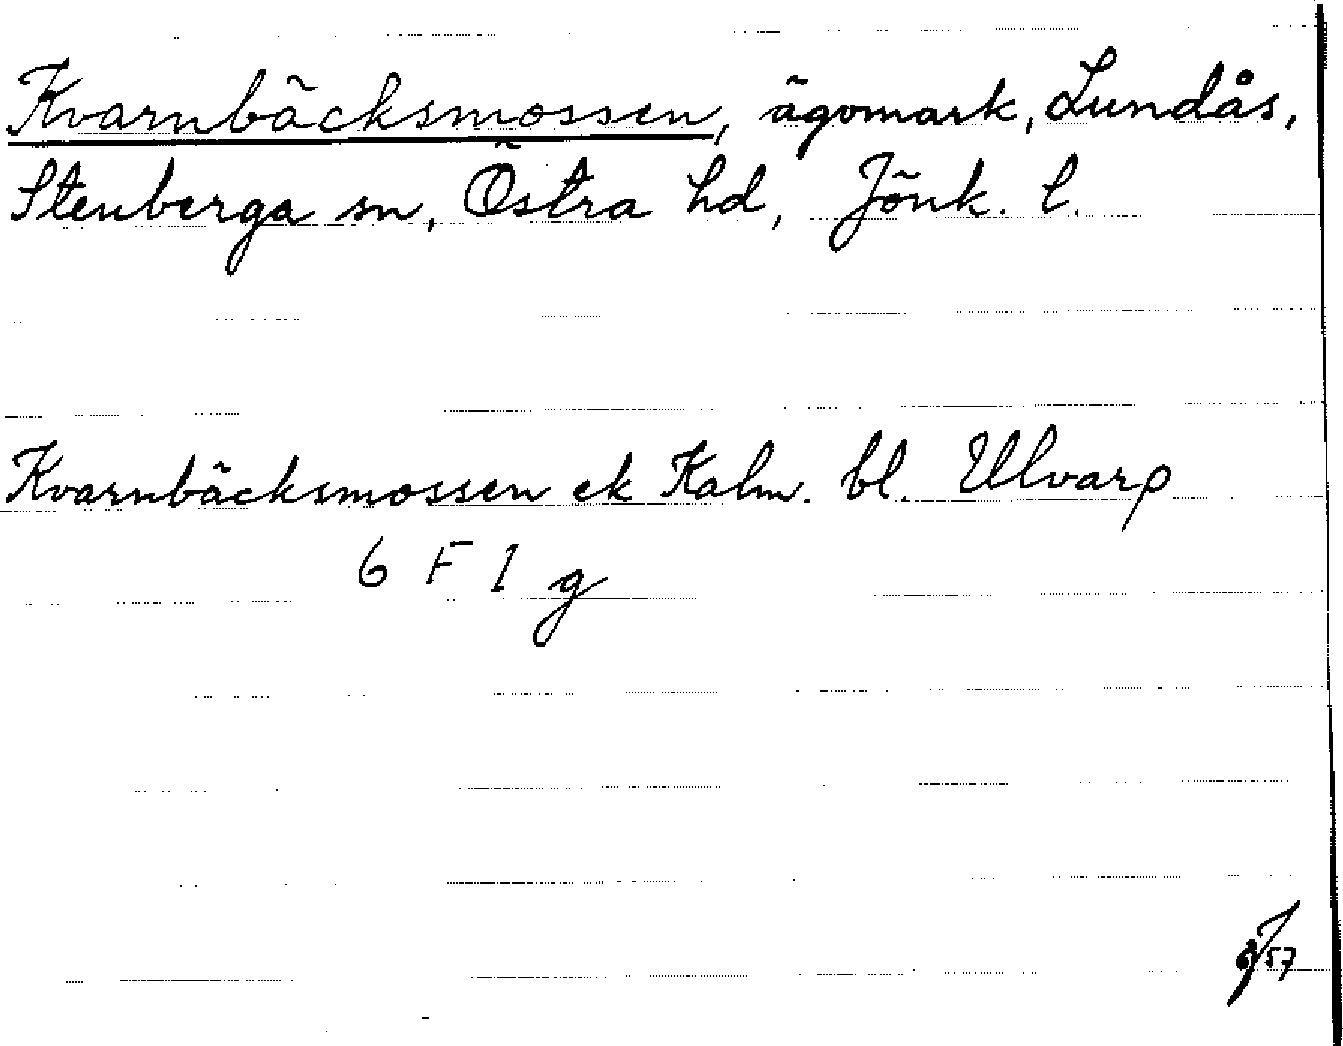 Kvarnbäcksmossen, ägomark, Lundås,
Stenberga sn, Östra hd, Jönk. l.
Kvarnbäcksmossen ek Kalm. bl. Ulvarp
6 F 1 g
57